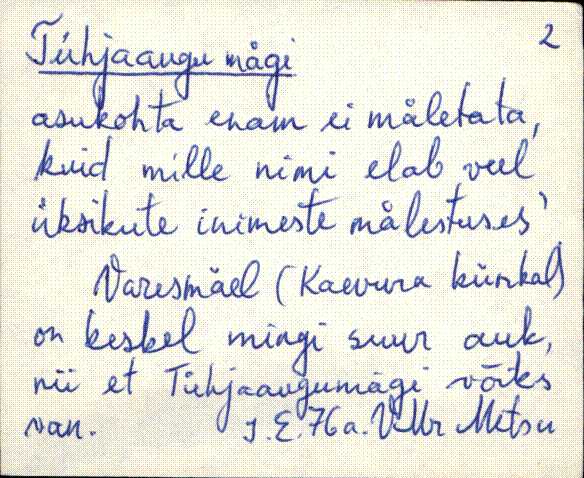 Tühjaaugu mägi 2
asukohta enam ei mäletata,
kuid mille nimi elab veel
üksikute inimeste mälestuses"
Varesmäel (Kaevura künkal)
on keskel mingi suur auk,
nii et Tühjaaugumägi võiks
van.